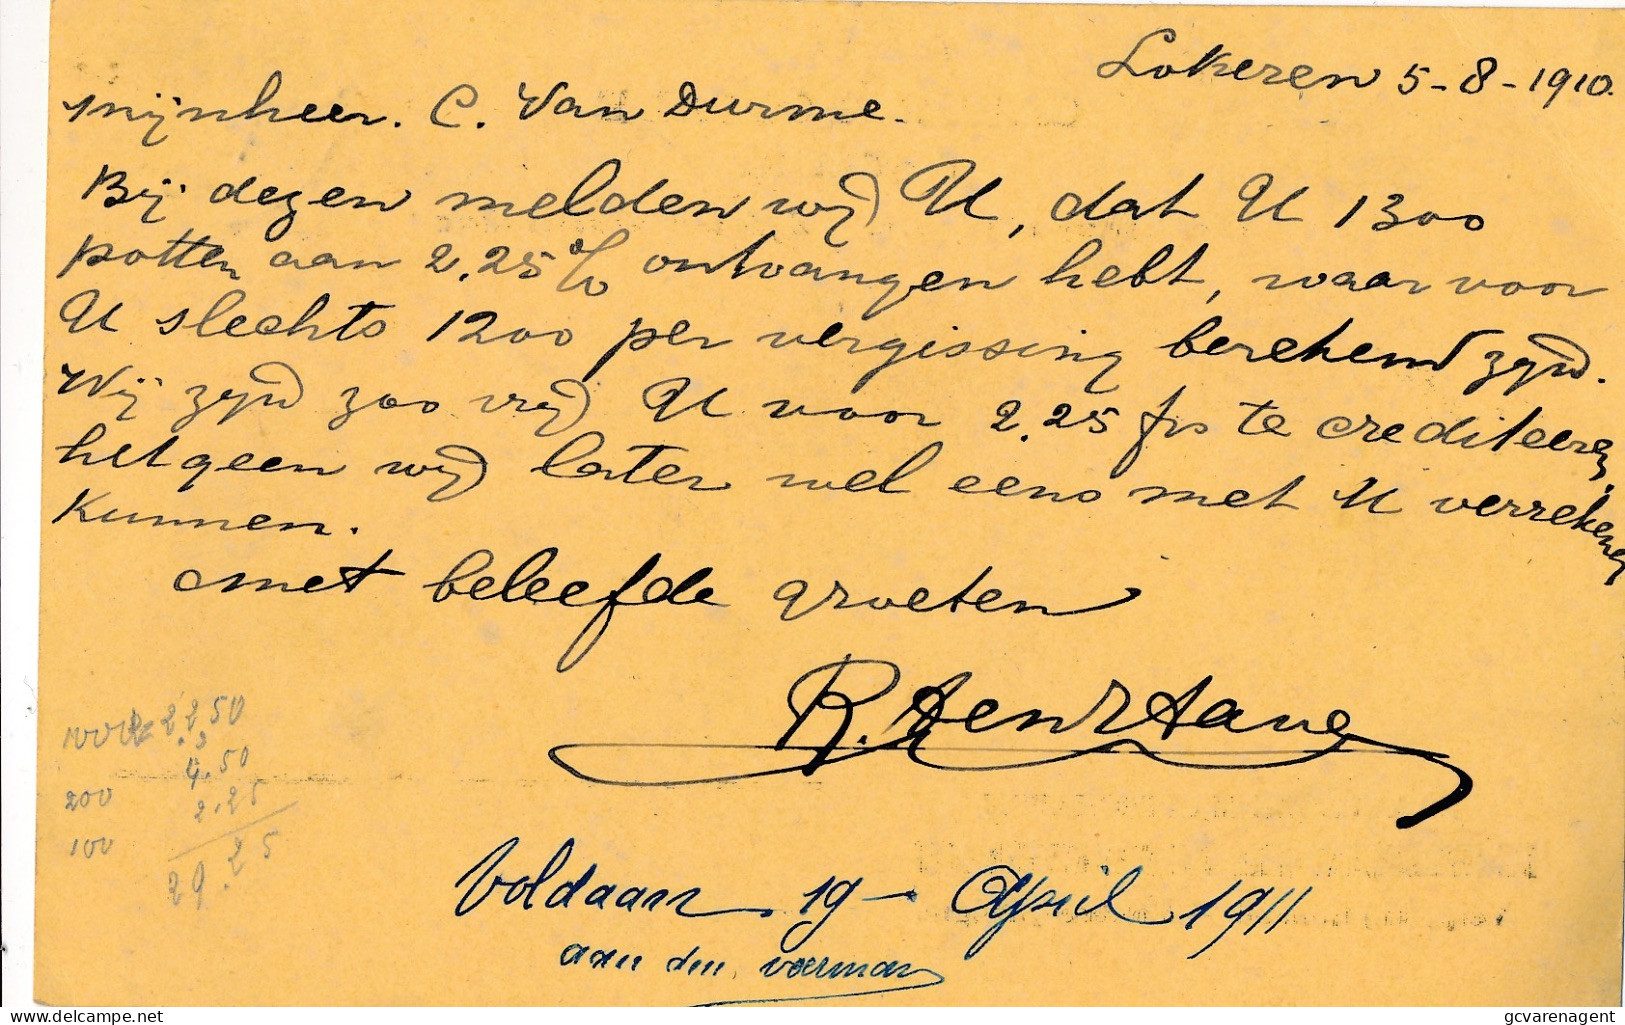 Lokeren 5-8-1910.
Mijnheer. C. Van Durme.
Bij dezen melden wij U, dat U 1300
potten aan 2.25 % ontvangen hebt, waarvoor
U slechts 1200 per vergissing berekend zijn.
Wij zijn zoo vrij U voor 2.25 frs te crediteeren,
hetgeen wij later wel eens met U verrekenen
kunnen.
met beleefde groeten
1000 22.50
4.50
200 2.25
100
29.25
Voldaan 19 - April 1911
aan den voerman
delcampe.net
gcvarenagent